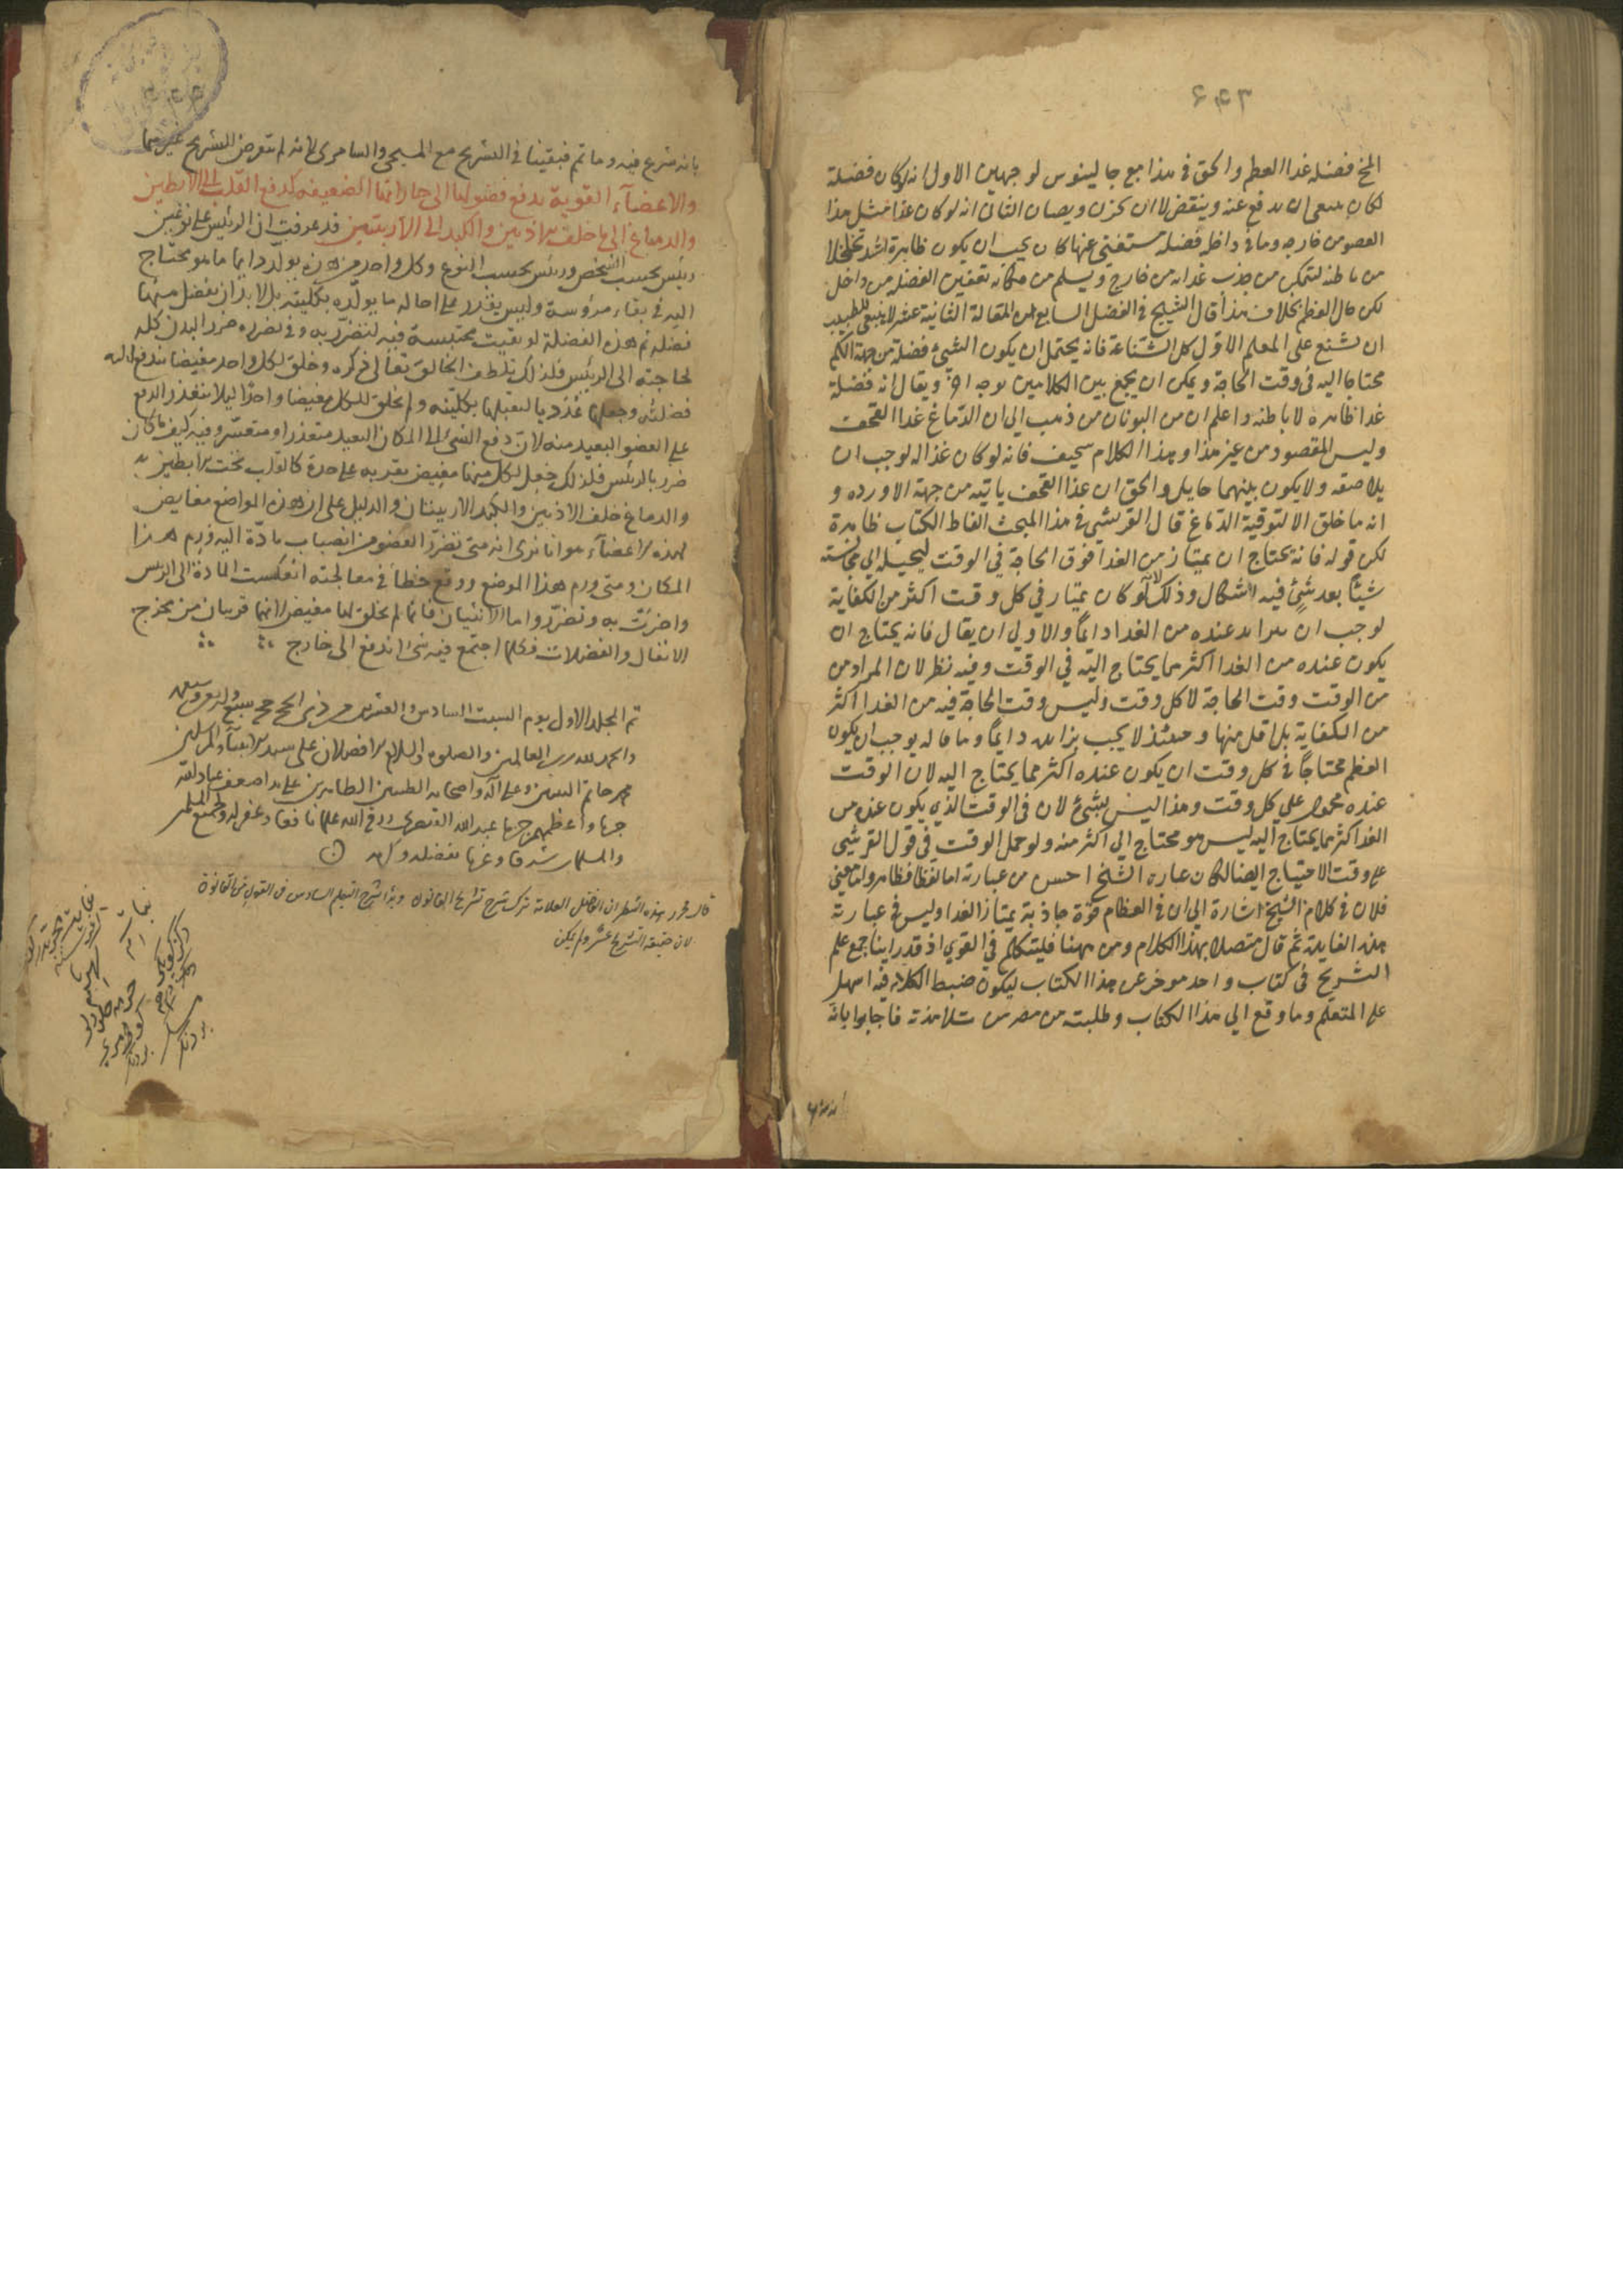 ۶۴۳
المخ فضلة غذا العظم والحق فى هذا مع جالينوس لوجهين الاول انه لو كان فضلة
لكان ينبغى ان يدفع عنه وينقض لا ان يخزن ويصان الثانى انه لو كان غذا مثل هذا
العضو من خارجه وما فى داخله فضلة مستغنى عنها كان يجب ان يكون ظاهره اشد تخلخلا
من باطنه لتمكن من جذب غذائه من خارج ويسلم من مكانه تعفين الفضلة من داخل
لكن حال العظم بخلاف هذا قال الشيخ فى الفصل السابع من المقالة الثانية عشر لا ينبغى للطبيب
ان يشنع على المعلم الاوّل كل الشناعة فانه يحتمل ان يكون الشئ فضلة من جهة الكم
محتاجا اليه فى وقت الحاجة ويمكن ان يجمع بين الكلامين بوجه اخر ويقال انه فضلة
غذا ظاهره لا باطنه واعلم ان من اليونان من ذهب الى ان الدّماغ غذا القحف
وليس المقصود من غير هذا وهذا الكلام سخيف فانه لو كان غذاله لوجب ان
يلاصقه ولا يكون بينهما حايل والحق ان غذا القحف ياتيه من جهة الاورده و
انه ما خلق الا لتوقية الدّماغ قال القرشي فى هذا المبحث الفاظ الكتاب ظاهرة
لكن قوله فانه يحتاج ان يمتاز من الغذا فوق الحاجة في الوقت ليحيله الى مجانسته
شيئًا بعد شئ فيه اشكال وذلك لانه لو كان يمتار في كل وقت اكثر من الكفاية
لوجب ان يتزايد عنده من الغذا دايمًا والاولى ان يقال فانه يحتاج ان
يكون عنده من الغذا اكثر مما يحتاج اليه في الوقت وفيه نظر لان المراد من
من الوقت وقت الحاجة لا كل وقت وليس وقت الحاجة فيه من الغذا اكثر
من الكفاية بل اقل منها وحينئذ لا يجب تزايده دايمًا وما قاله يوجب ان يكون
العظم محتاجًا فى كل وقت ان يكون عنده اكثر مما يحتاج اليه لان الوقت
عنده محمول علي كل وقت وهذا ليس بشئ لان فى الوقت الذي يكون عنده من
الغذا اكثر مما يحتاج اليه ليس هو محتاج الي اكثر منه ولو حمل الوقت في قول القرشي
على وقت الاحتياج ايضا لكان عبارة الشيخ احسن من عبارته اما لفظا فظاهر واما معنى
فلان فى كلام الشيخ اشارة الي ان فى العظام قوّة جاذبة يمتاز الغذا وليس فى عبارته
هذه الفايدة ثم قال متصلا بهذا الكلام ومن ههنا فليتكلم في القوي اذ قد راينا جمع علم
التشريح فى كتاب واحد موخر عن هذا الكتاب ليكون ضبط الكلام فيه اسهل
على المتعلم وما وقع الي هذا الكتاب وطلبته من مصر من تلامذته فاجابوا بانه
بانه شرع فيه وما تم فبقينا فى التشريح مع المسيحى والسامرى لانه لم يتعرض للتشريح غيرهما
والاعضآء القوية تدفع فضولها الى جاراتها الضعيفة كدفع القلب الى الابطين
والدماغ الى ما خلف الاذنين والكبد الى الاربيتين قد عرفت ان الرئيس على نوعين
رئيس بحسب الشخص ورئيس بحسب النوع وكل واحد من هذه يولّد دايما ما هو محتاج
اليه فى بقاء مرؤسه وليس يقدر على احالة ما يولّده بكليته بل لا بد ان يفضل منها
فضلة ثم هذه الفضلة لو بقيت محتبسة فيه لتضرّر به وفى تضرره ضرر البدن كله
لحاجته الى الرئيس فلذلك تلطف الخالق تعالى ذكره وخلق لكل واحد مغيضا يندفع اليه
فضلته وجعلها غددية لتقبلها بكليته ولم يخلق للكل مغيضا واحدًا ليلا يتعذر الدفع
على العضو البعيد منه لان دفع الشئ الى المكان البعيد متعذر او متعسّر وفيه كيف ما كان
ضرر بالرئيس فلذلك جعل لكل منها مغيض بقربه على حدة كالقلب تحت الابطين
والدماغ خلف الاذنين والكبد الاربيتان والدليل على ان هذه المواضع مغايض
لهذه الاعضآء هو انا نرى انه متى تضرّر العضو من انصباب مادّة اليه ورم هذا
المكان ومتى ورم هذا الموضع ووقع خطأ فى معالجته انعكست المادة الى الرئيس
واضرّت به وتضرّر واما الانثيان فانما لم يخلق لهما مغيض لانهما قريبان من مخرج
الاثفال والفضلات فكلما اجتمع فيه شئ اندفع الى خارج
تم المجلد الاول يوم السبت السادس والعشرين من ذى الحج سبع واربعين
والحمد لله رب العالمين والصلوة والسلام الافضلان على سيد الانبياء والمرسلين
محمد خاتم النبيين وعلى آله واصحابه الطيبين الطاهرين على يد اضعف عباد الله
جرما واعظمهم جرما عبد الله رزقه الله علما نافعا وغفر له ولجميع المسلمين
والمسلمات شرقا وغربا بفضله وكرمه
قال محرر هذه الاسطر ان الفاضل العلامة ترك شرح تشريح القانون وبدأ بشرح التعليم السادس فى القوى من القانون
لان حقيقة التشريح عسر ولم يكن